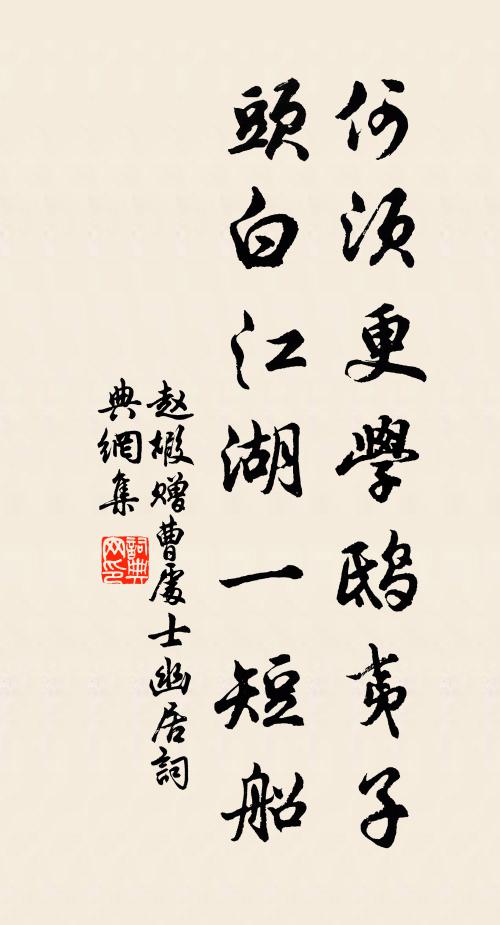 何須更學鴟夷子
頭白江湖一短船
赵嘏赠曹處士幽居詞
典網集
詞典网印